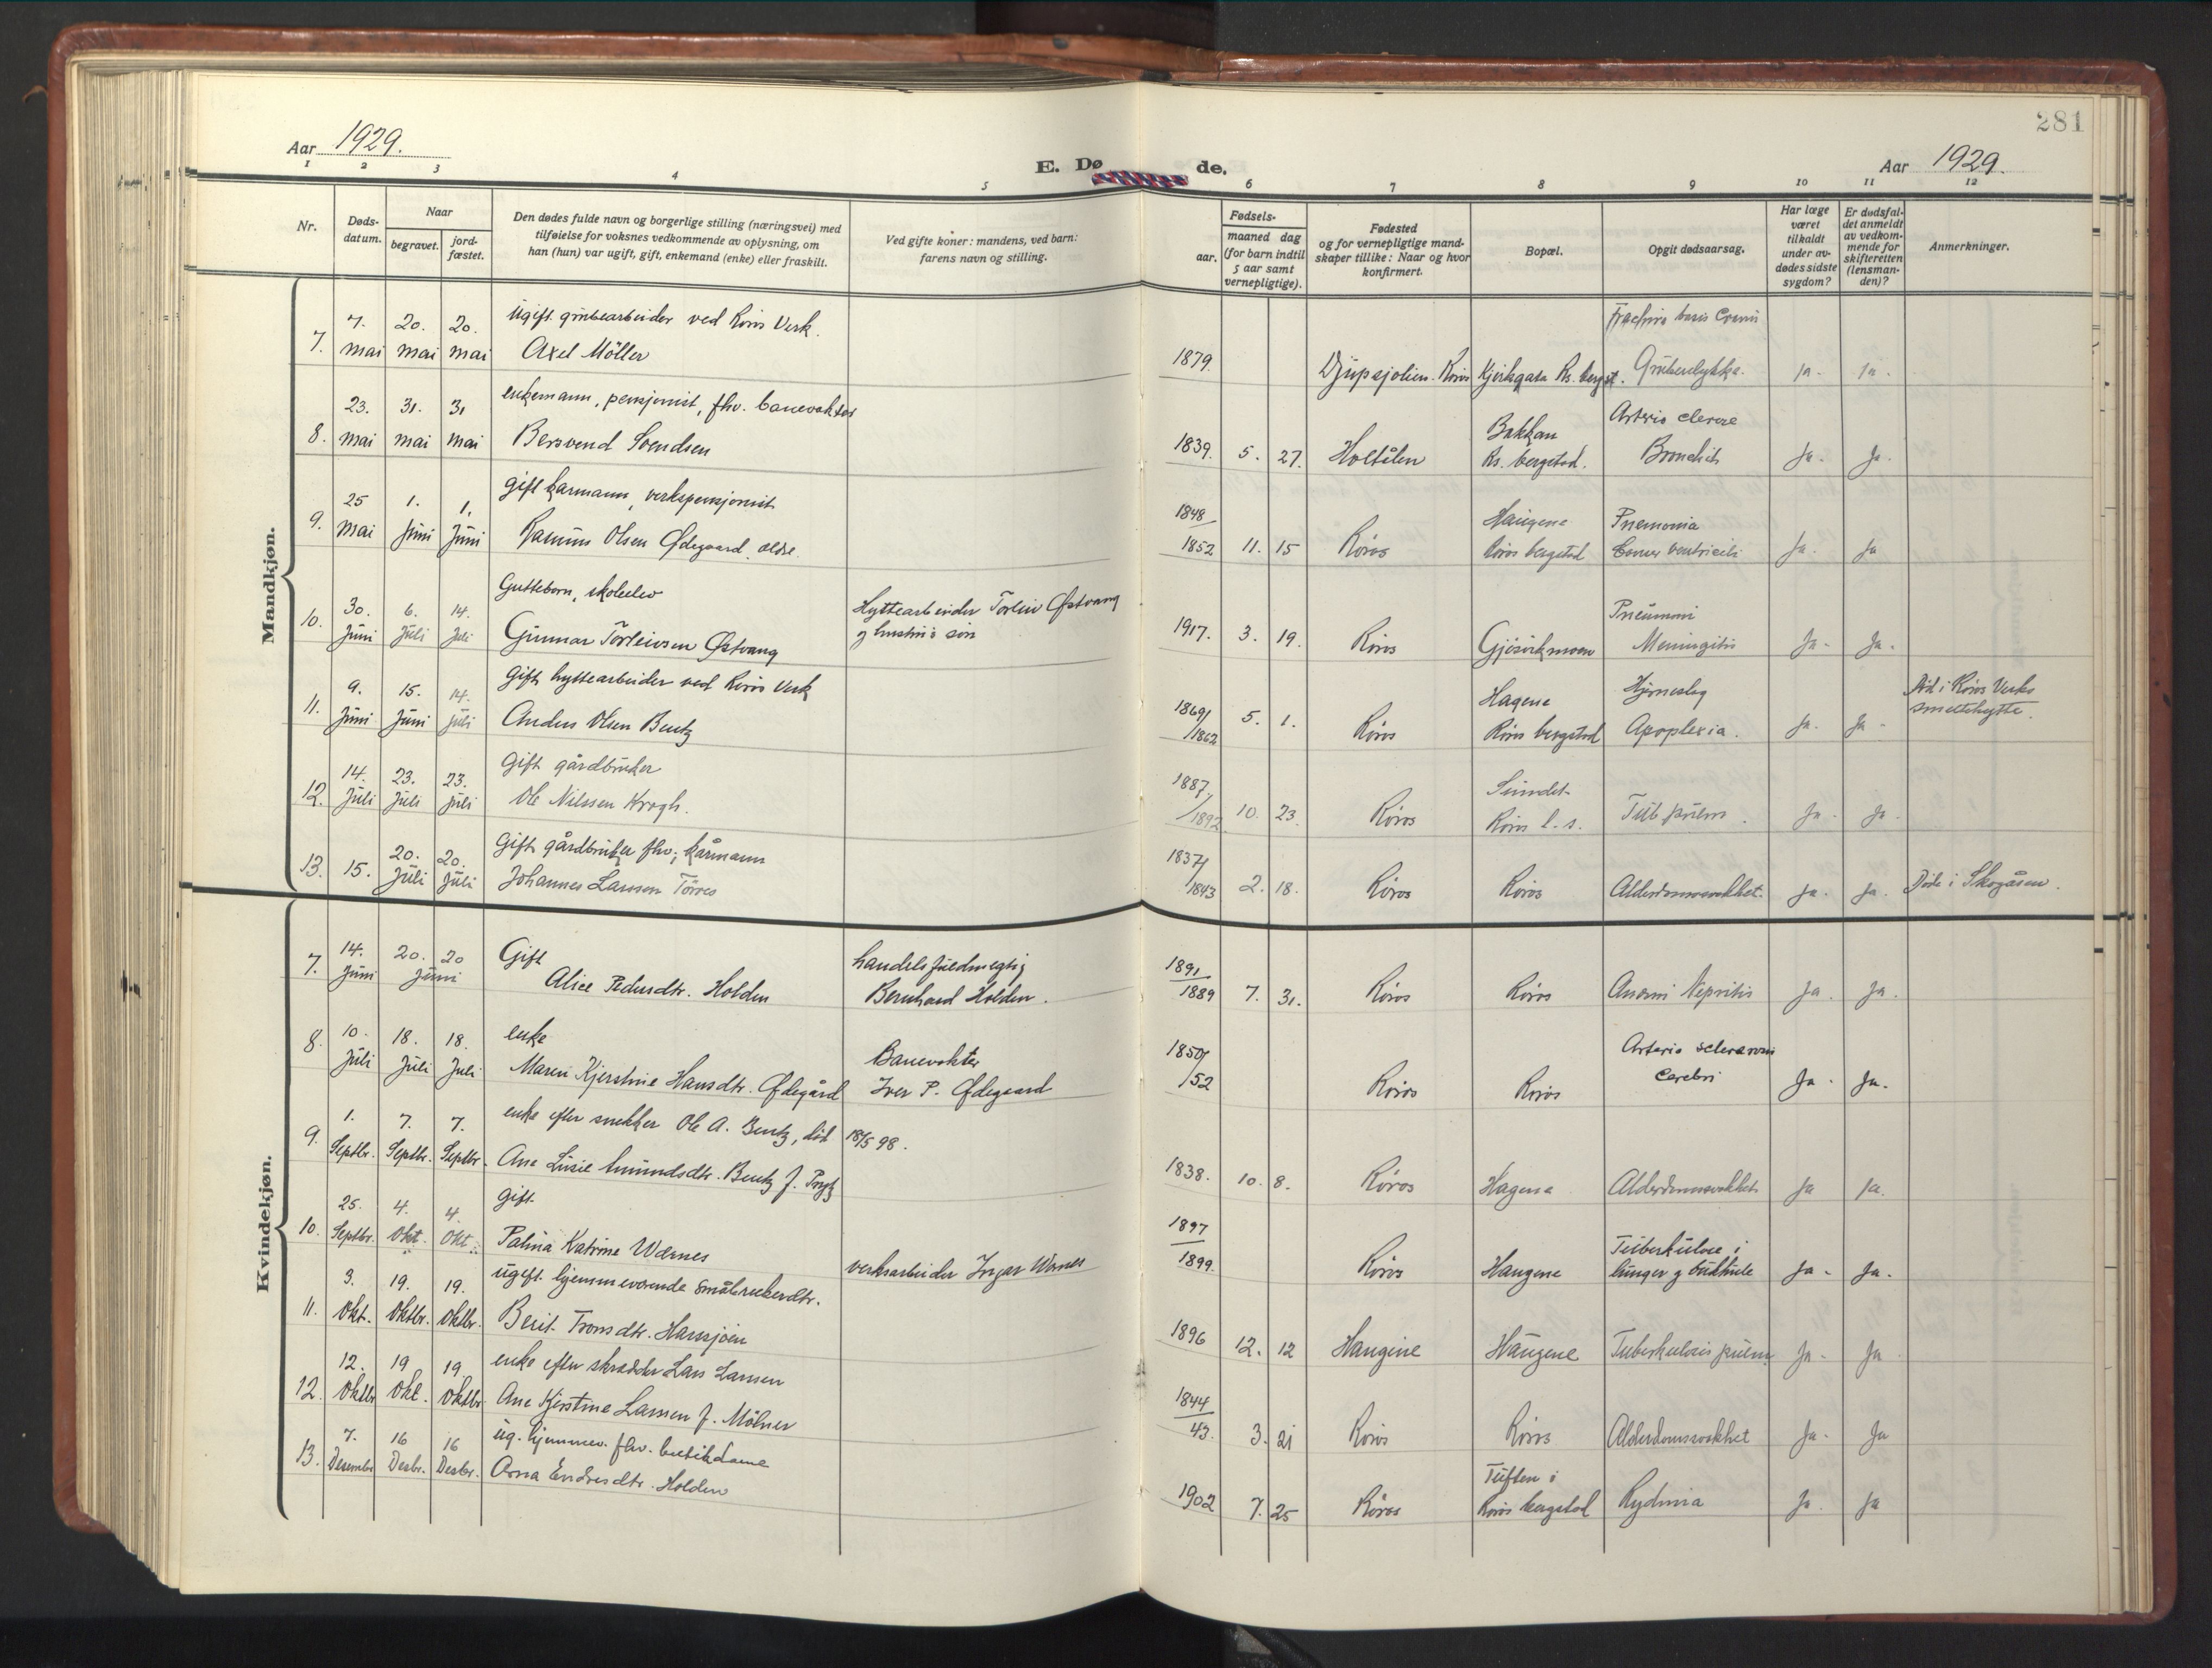 281
Aar 1929.
E. Dø de.
Aar 1929.
1 2 3 4 5 6 7 8 9 10 11 12
Nr.
Døds-
datum.
Naar
begravet.
jord-
fæstet.
Den dødes fulde navn og borgerlige stilling (næringsvei) med
tilføielse for voksnes vedkommende av oplysning, om
han (hun) var ugift, gift, enkemand (enke) eller fraskilt.
Ved gifte koner: mandens, ved barn:
farens navn og stilling.
Fødsels-
aar.
maaned dag
(for barn indtil
5 aar samt
vernepligtige).
Fødested
og for vernepligtige mand-
skaper tillike: Naar og hvor
konfirmert.
Bopæl.
Opgit dødsaarsag.
Har læge
været
tilkaldt
under av-
dødes sidste
sygdom?
Er dødsfal-
det anmeldt
av vedkom-
mende for
skifteretten
(lensman-
den)?
Anmerkninger.
Mandkjøn.
7. 20. 20. Ugift grubearbeider ved Røros Verk. basis
7. mai mai mai Axel Möller 1879. Djupsjolien. Røros Kjerkgata Rs. bergst. Grubeulykke. ja. ja.
23. 31. 31 enkemann, pensjonist, fhv. banevokter Bakkan Arterio
8. mai mai mai Bersvend Svendsen 1839. 5. 27. Holtålen Rs. bergstad. Bronchit Ja. Ja.
25 1. 1. gift karmann, verkspensjonist 1848 Haugene Pnemonia
9. mai Juni Juni Olsen Ødegaard, eldre. 1852 11. 15 Røros Røros bergstad ventriculi Ja. Ja
30. 6. 14. Guttebarn, skoleelev Hyttearbeider Torleiv Østvang Pneumoni
10. Juni Juli Juli Gunnar Torleivsen Østvang og hustrus søn 1917. 3. 19. Røros Gjøsvikmoen Meningitis Ja. Ja.
9. 15. 14. Gift hyttearbeider ved Røros Verk 1869/ Hagene Hjerneslag Død i Røros Verks
11. Juni Juni Juli Anders Olsen Bentz /1862 5. 1. Røros Røros bergstad Apoplexia. Ja. Ja. smeltehytte.
14. 23. 23. Gift gårdbruker 1887. Sundet
12. Juli Juli Juli Ole Nilssen Krogh. /1892 10. 23. Røros Røros l. s. Tub pulm. Ja. Ja.
20. 20. Gift gårdbruker fhv., kårmann 1837/
13. 15. Juli Juli Johannes Larssen Törres /1843 2. 18. Røros Røros Alderdomssvakhet. Ja. Ja. Døde i Skogåsen.
Kvindekjøn.
14. 20. 20 Gift handelsfuldmegtig 1891
7. Juni Juni Alice Pedersdtr. Holden Bernhard Holden. 1889 7. 31. Røros Røros Anæmi Nepritis Ja. Ja.
10. 18. 18. enke Banevokter 1850/ Arterio
8. Juli Juli Juli Maren Kjerstine Hansdtr. Ødegård Iver P. Ødegaard /52 Røros Røros Cerebri Ja. Ja.
1. 7. 7. enke efter snekker Ole A. Bentz, død 18/5 98.
9. Septbr. Septbr. Septbr. Ane Lusie Amundsdtr. Bentz f. 1838. 10. 8. Røros Hagene Alderdomssvakhet Ja ja.
25. 4. 4. gift 1897 Tuberkulose i
10. Septbr. Okt. Okt. Palma Katrine Wærnes verksarbeider Ingar Wernes 1899. Røros Haugene lunger og bukhule Ja. Ja.
3. 19. 19. ugift hjemmeværende småbrukerdtr.
11. Okt. Oktbr. Oktbr. Berit Tronsdtr. Harsjøen 1896 12. 12 Haugene Haugene Tuberkulosis pulm Ja. Ja
12. 19 19 enke efter skrædder Lars Larsen 1844
12. Oktbr Okt. Oktbr. Ane Kjerstine Larsen f. Mölner 43. 3. 21 Røros Røros Alderdomssvakhet Ja. Ja
7. 16 16 ug. hjemmev. fhv. butikdame Tuften i
13. Desember Desbr. Desbr. Anna Endresdtr. Holden 1902 7. 25 Røros Røros bergstad Ja. Ja